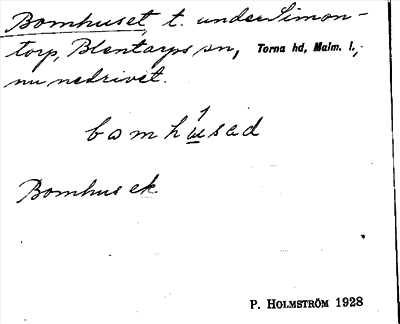 Bomhuset, t. under Simon-
torp, Blentarps sn, Torna hd, Malm. l.,
nu nedrivet.
bomhúsəd
Bomhus ek.
P. HOLMSTRÖM 1928